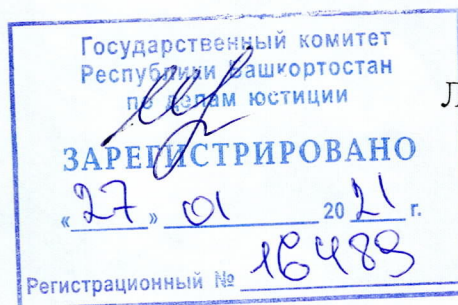 Государственный комитет
Республики Башкортостан
по делам юстиции
Л
ЗАРЕГИСТРИРОВАНО
«27» 01 2021 г.
Регистрационный № 16489